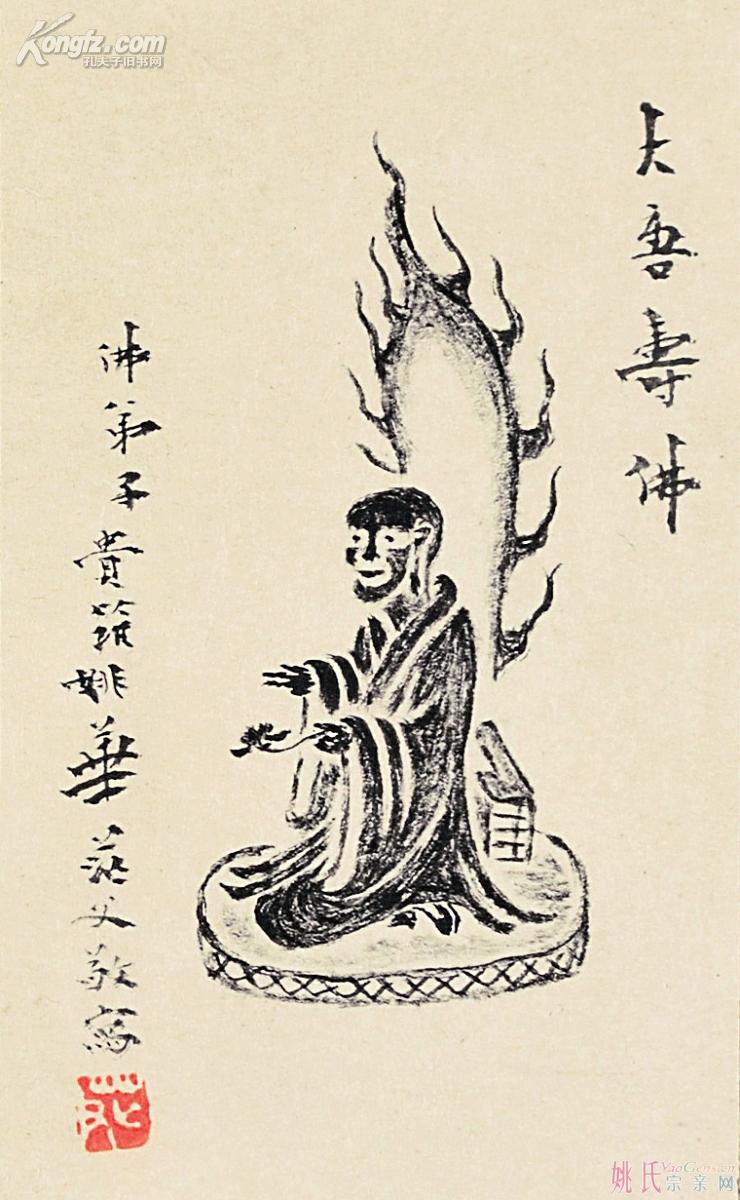 Kongfz.com
孔夫子旧书网
大吾壽佛
佛弟子貴筑姚華茫父敬寫
姚氏宗亲网